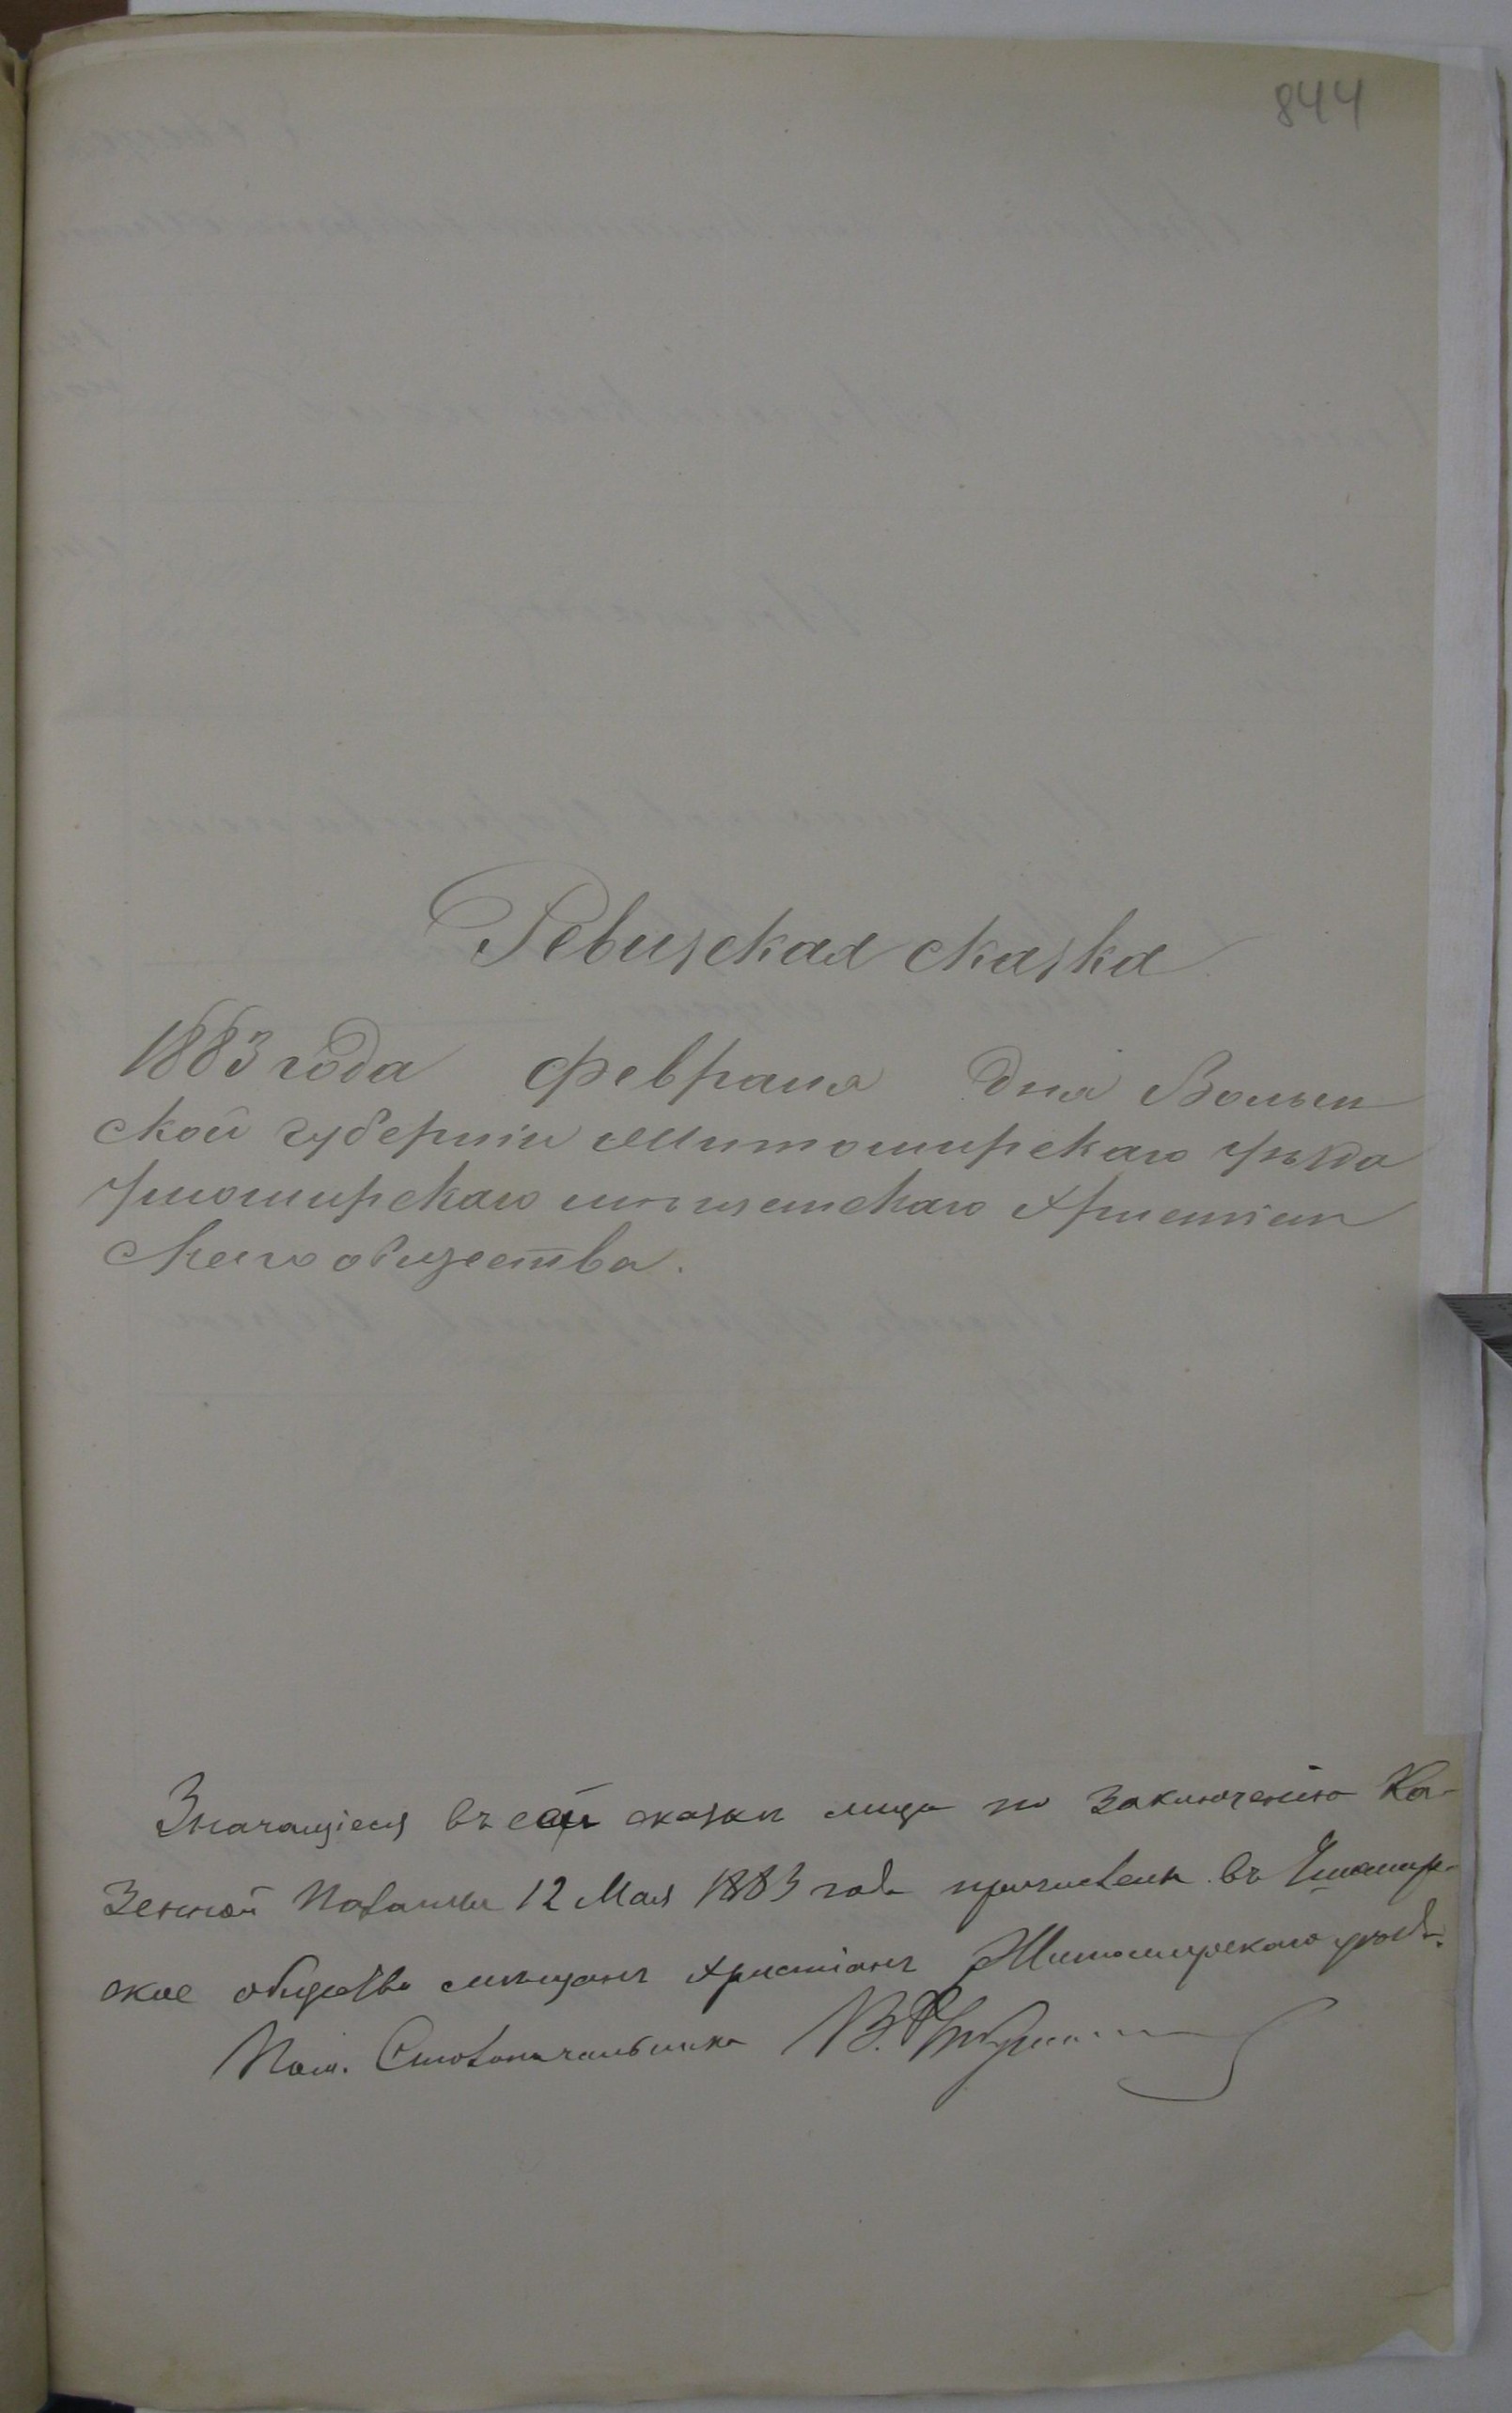 844
Ревизская сказка
1883 года февраля дня Волын
ской губернiи Житомирскаго уѣзда
Ушомирскаго мѣщанскаго Христiан
скаго общества.
Значащiеся въ сей сказкѣ лица по заключенiю Ка-
зенной Палаты 12 Мая 1883 года причислены въ Ушомир-
ское общество мѣщанъ христiанъ Житомирскаго уѣзда.
Пом. Столоначальника В.